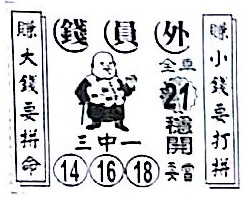 賺大錢要拼命
錢員外
全車
21
穩開
要當
三中一
14 16 18
賺小錢要打拼